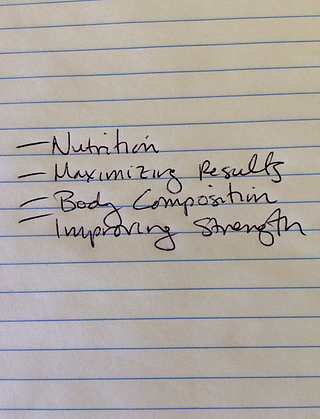 — Nutrition
— Maximizing Results
— Body Composition
— Improving Strength